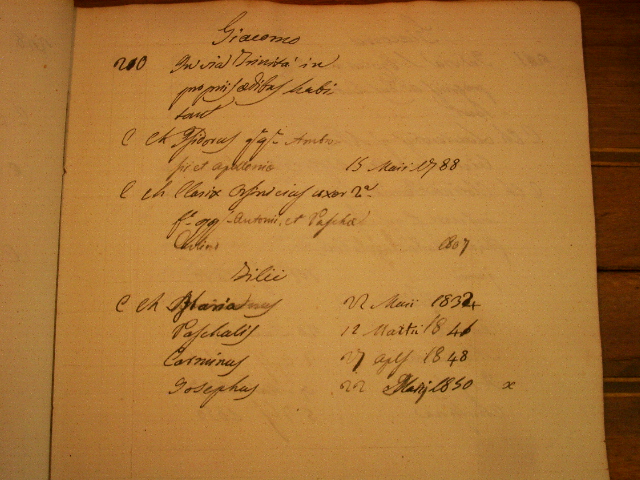 Giacomo
210 In via Trinità in
propriis ædibus habi
tant
C Ch Isidorus qm qm Ambro
sii et Apoloniæ 15 Maii 1788
C Ch Maria uxor 2a
f. qm qm Antonii, et Paschæ
1807
Filii
C Ch Maria 22 Maii 1834
Paschalis 12 Martii 1841
Carminus 27 Aplis 1848
Josephus 22 Maij 1850 x